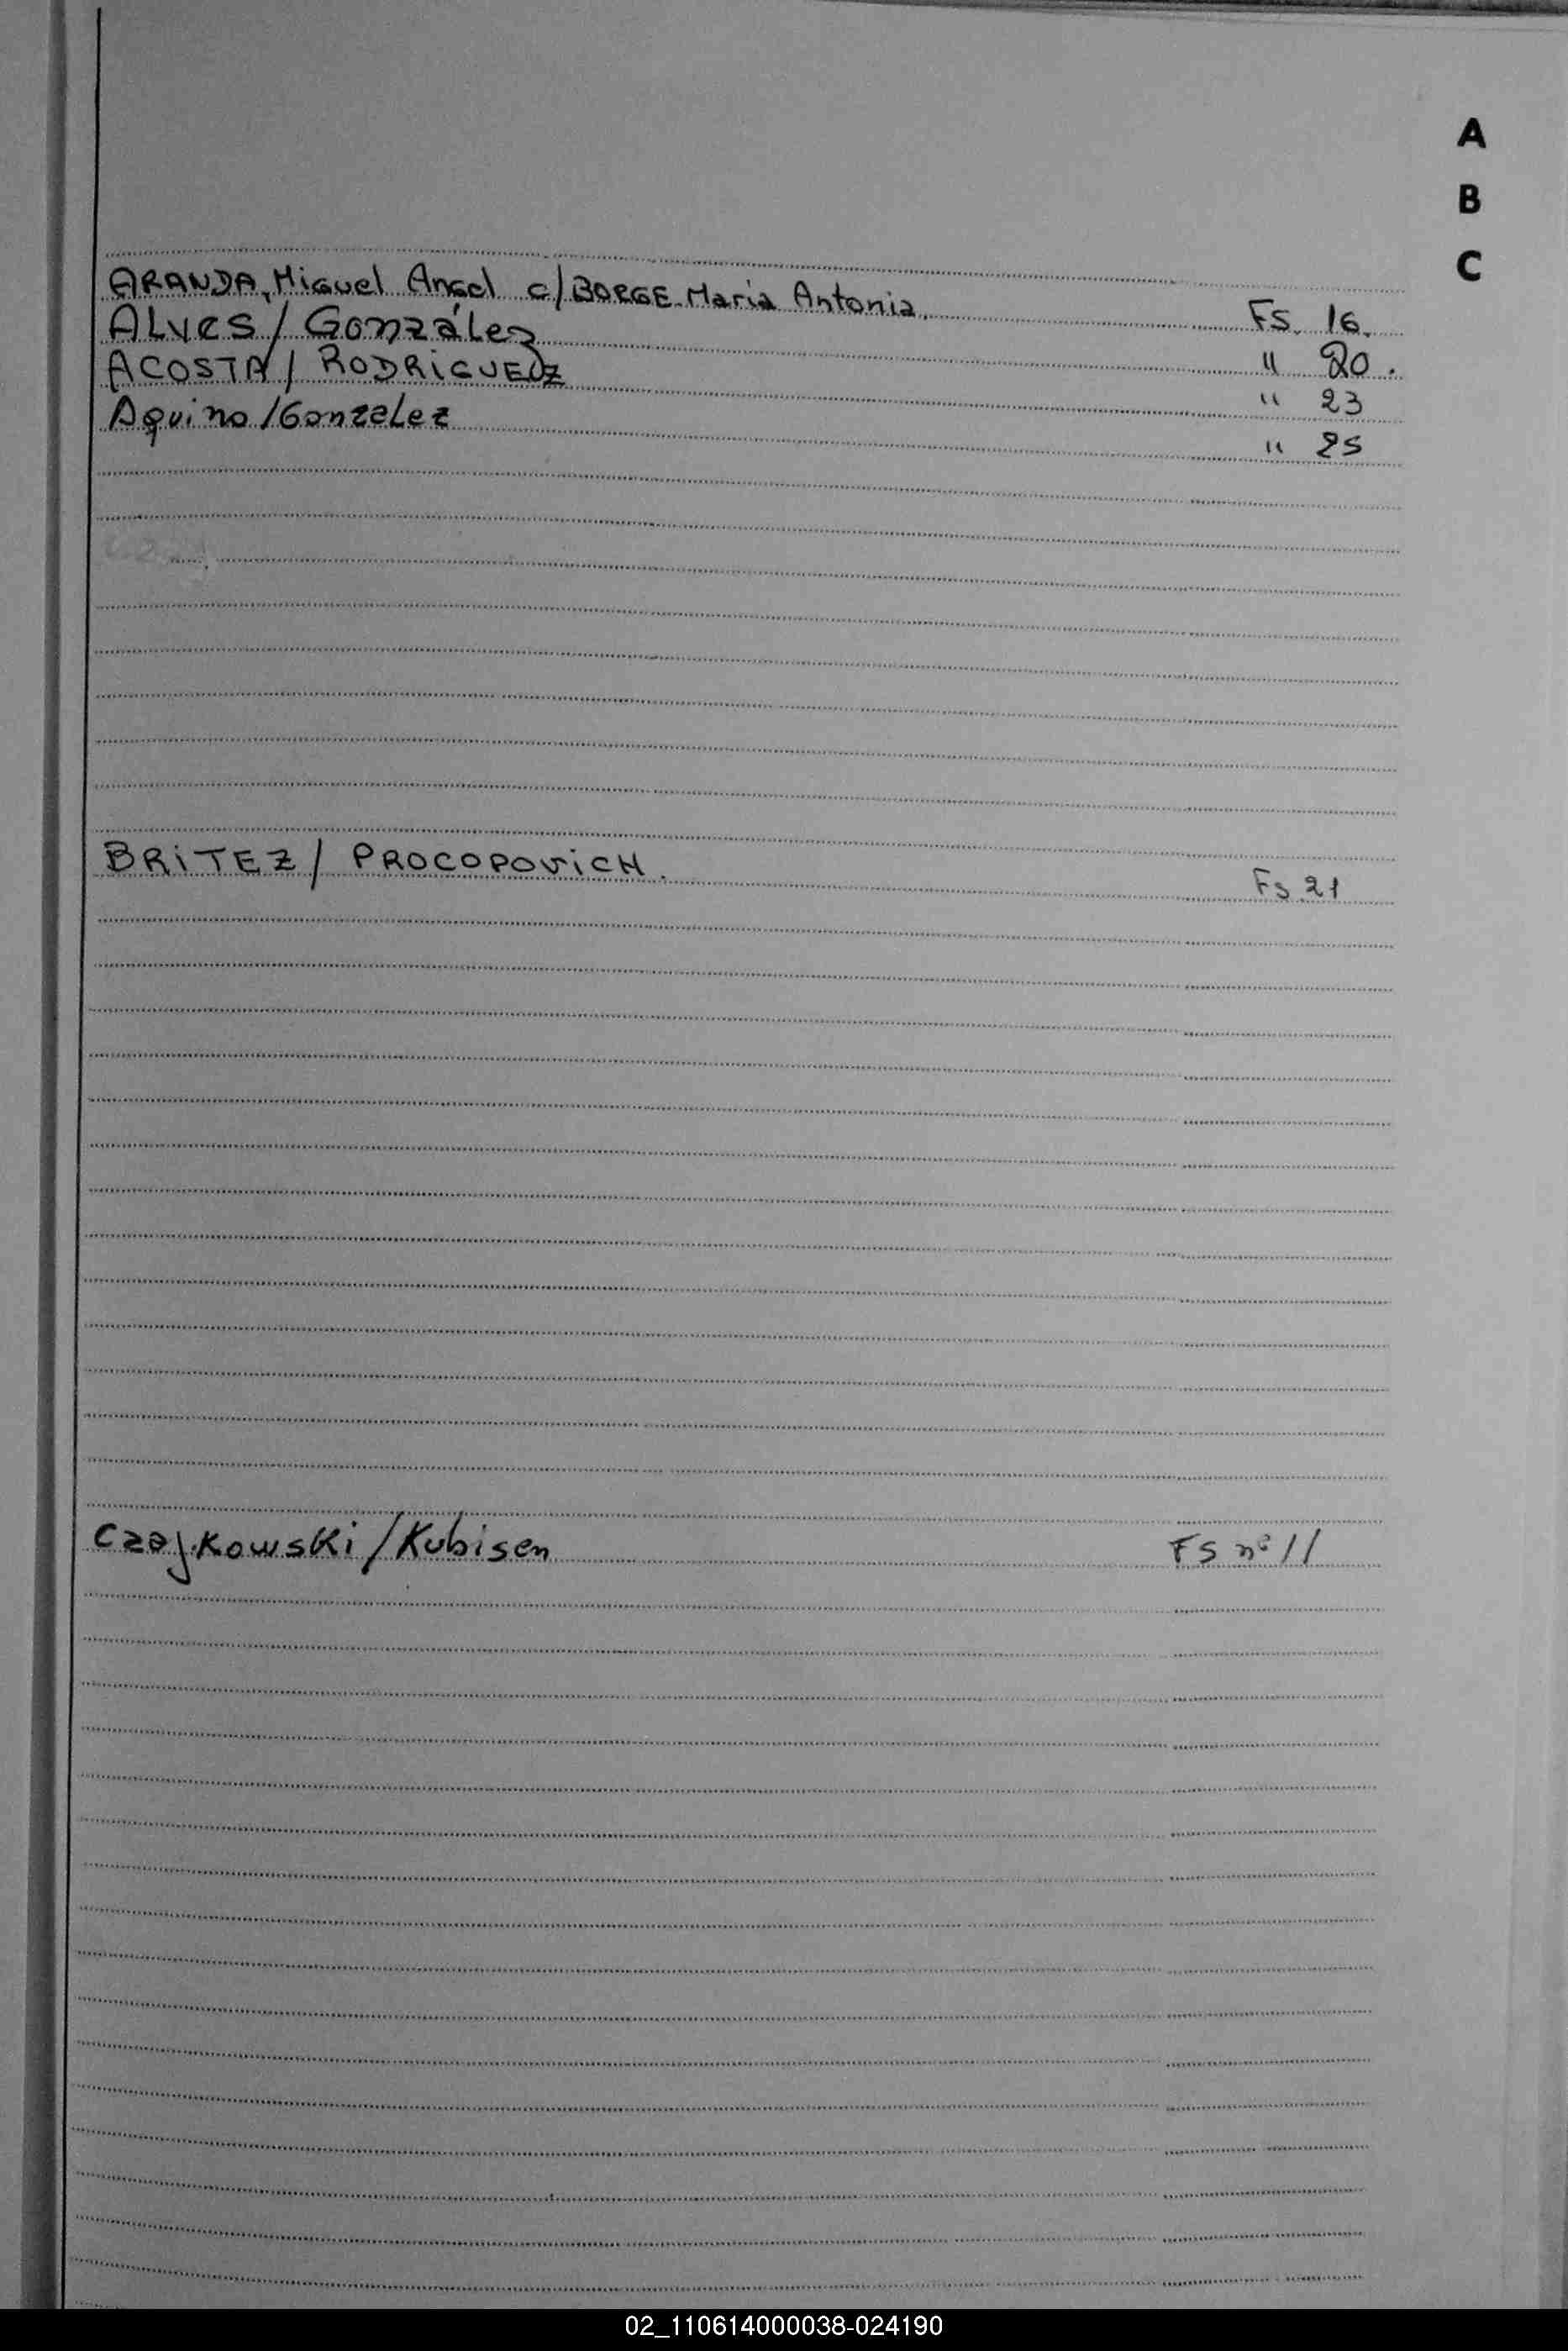 A
B
C
ARANDA, Miguel Angel c/ BORGE Maria Antonia. Fs. 16.
ALVES / González " 20.
ACOSTA / RODRIGUEZ " 23
Aquino / Gonzalez " 25
BRITEZ / PROCOPOVICH. Fs 21
Czajkowski / Kubisen FS nº 11
02_110614000038-024190